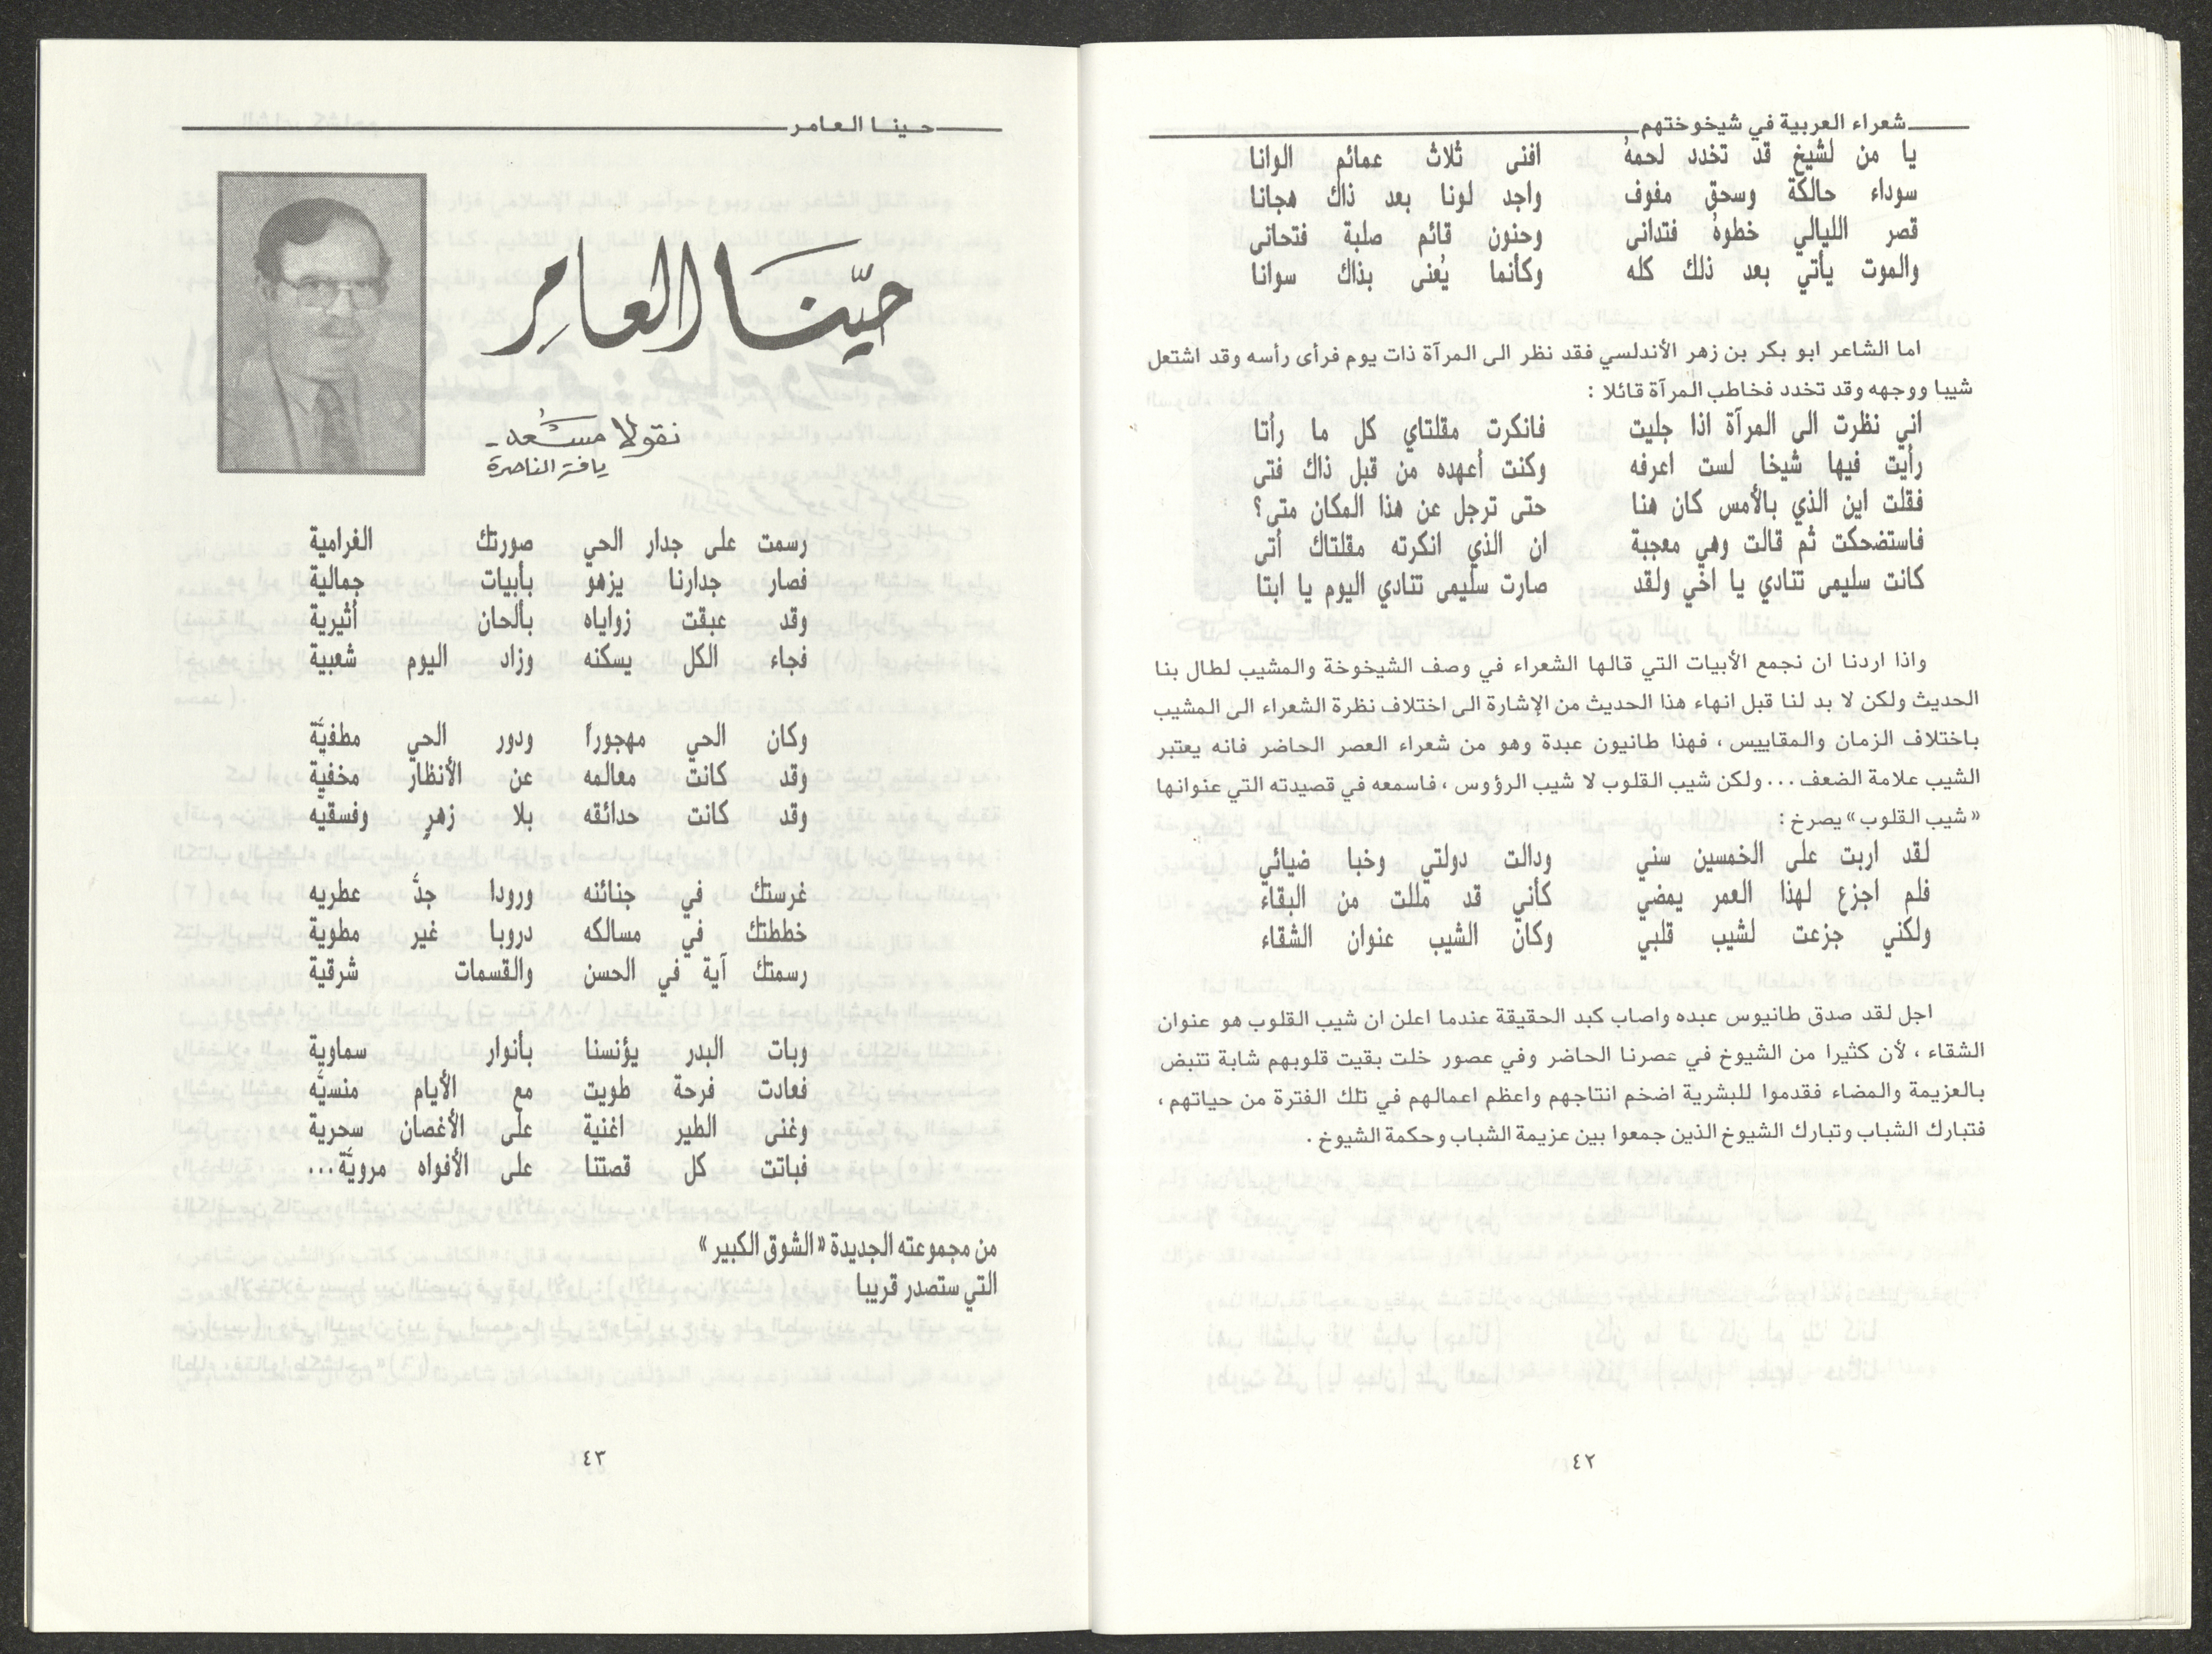 شعراء العربية في شيخوختهم
يا من لشيخ قد تخدد لحمهُ افنى ثلاث عمائم الوانا
سوداء حالكة وسحق مفوف واجد لونا بعد ذاك هجانا
قصر الليالي خطوهُ فتدانى وحنون قائم صلبة فتحانى
والموت يأتي بعد ذلك كله وكأنما يُعنى بذاك سوانا
اما الشاعر ابو بكر بن زهر الأندلسي فقد نظر الى المرآة ذات يوم فرأى رأسه وقد اشتعل
شيبا ووجهه وقد تخدد فخاطب المرآة قائلا :
اني نظرت الى المرآة اذا جليت فانكرت مقلتاي كل ما رأتا
رأيت فيها شيخا لست اعرفه وكنت أعهده من قبل ذاك فتى
فقلت اين الذي بالأمس كان هنا حتى ترجل عن هذا المكان متى؟
فاستضحكت ثم قالت وهي معجبة ان الذي انكرته مقلتاك أتى
كانت سليمى تنادي يا اخي ولقد صارت سليمى تنادي اليوم يا ابتا
واذا اردنا ان نجمع الأبيات التي قالها الشعراء في وصف الشيخوخة والمشيب لطال بنا
الحديث ولكن لا بد لنا قبل انهاء هذا الحديث من الإشارة الى اختلاف نظرة الشعراء الى المشيب
باختلاف الزمان والمقاييس ، فهذا طانيون عبدة وهو من شعراء العصر الحاضر فانه يعتبر
الشيب علامة الضعف... ولكن شيب القلوب لا شيب الرؤوس ، فاسمعه في قصيدته التي عنوانها
«شيب القلوب» يصرخ :
لقد اربت على الخمسين سني ودالت دولتي وخبا ضيائي
فلم اجزع لهذا العمر يمضي كأني قد مللت من البقاء
ولكني جزعت لشيب قلبي وكان الشيب عنوان الشقاء
اجل لقد صدق طانيوس عبده واصاب كبد الحقيقة عندما اعلن ان شيب القلوب هو عنوان
الشقاء ، لأن كثيرا من الشيوخ في عصرنا الحاضر وفي عصور خلت بقيت قلوبهم شابة تنبض
بالعزيمة والمضاء فقدموا للبشرية اضخم انتاجهم واعظم اعمالهم في تلك الفترة من حياتهم ،
فتبارك الشباب وتبارك الشيوخ الذين جمعوا بين عزيمة الشباب وحكمة الشيوخ .
٤٢
حينا العامر
حيّنا العامر
نقولا مسعد -
يافة الناصرة
رسمت على جدار الحي صورتك الغرامية
فصار جدارنا يزهو بأبيات جمالية
وقد عبقت زواياه بألحان أثيرية
فجاء الكل يسكنه وزاد اليوم شعبية
وكان الحي مهجوراً ودور الحي مطفيّة
وقد كانت معالمه عن الأنظار مخفية
وقد كانت حدائقه بلا زهرٍ وفسقيّه
غرستك في جنائنه ورودا جدَّ عطريه
خططتك في مسالكه دروبا غير مطوية
رسمتك آية في الحسن والقسمات شرقية
وبات البدر يؤنسنا بأنوار سماوية
فعادت فرحة طويت مع الأيام منسيّه
وغنى الطير اغنية على الأغصان سحرية
فباتت كل قصتنا على الأفواه مرويّة...
من مجموعته الجديدة «الشوق الكبير»
التي ستصدر قريبا
٤٣